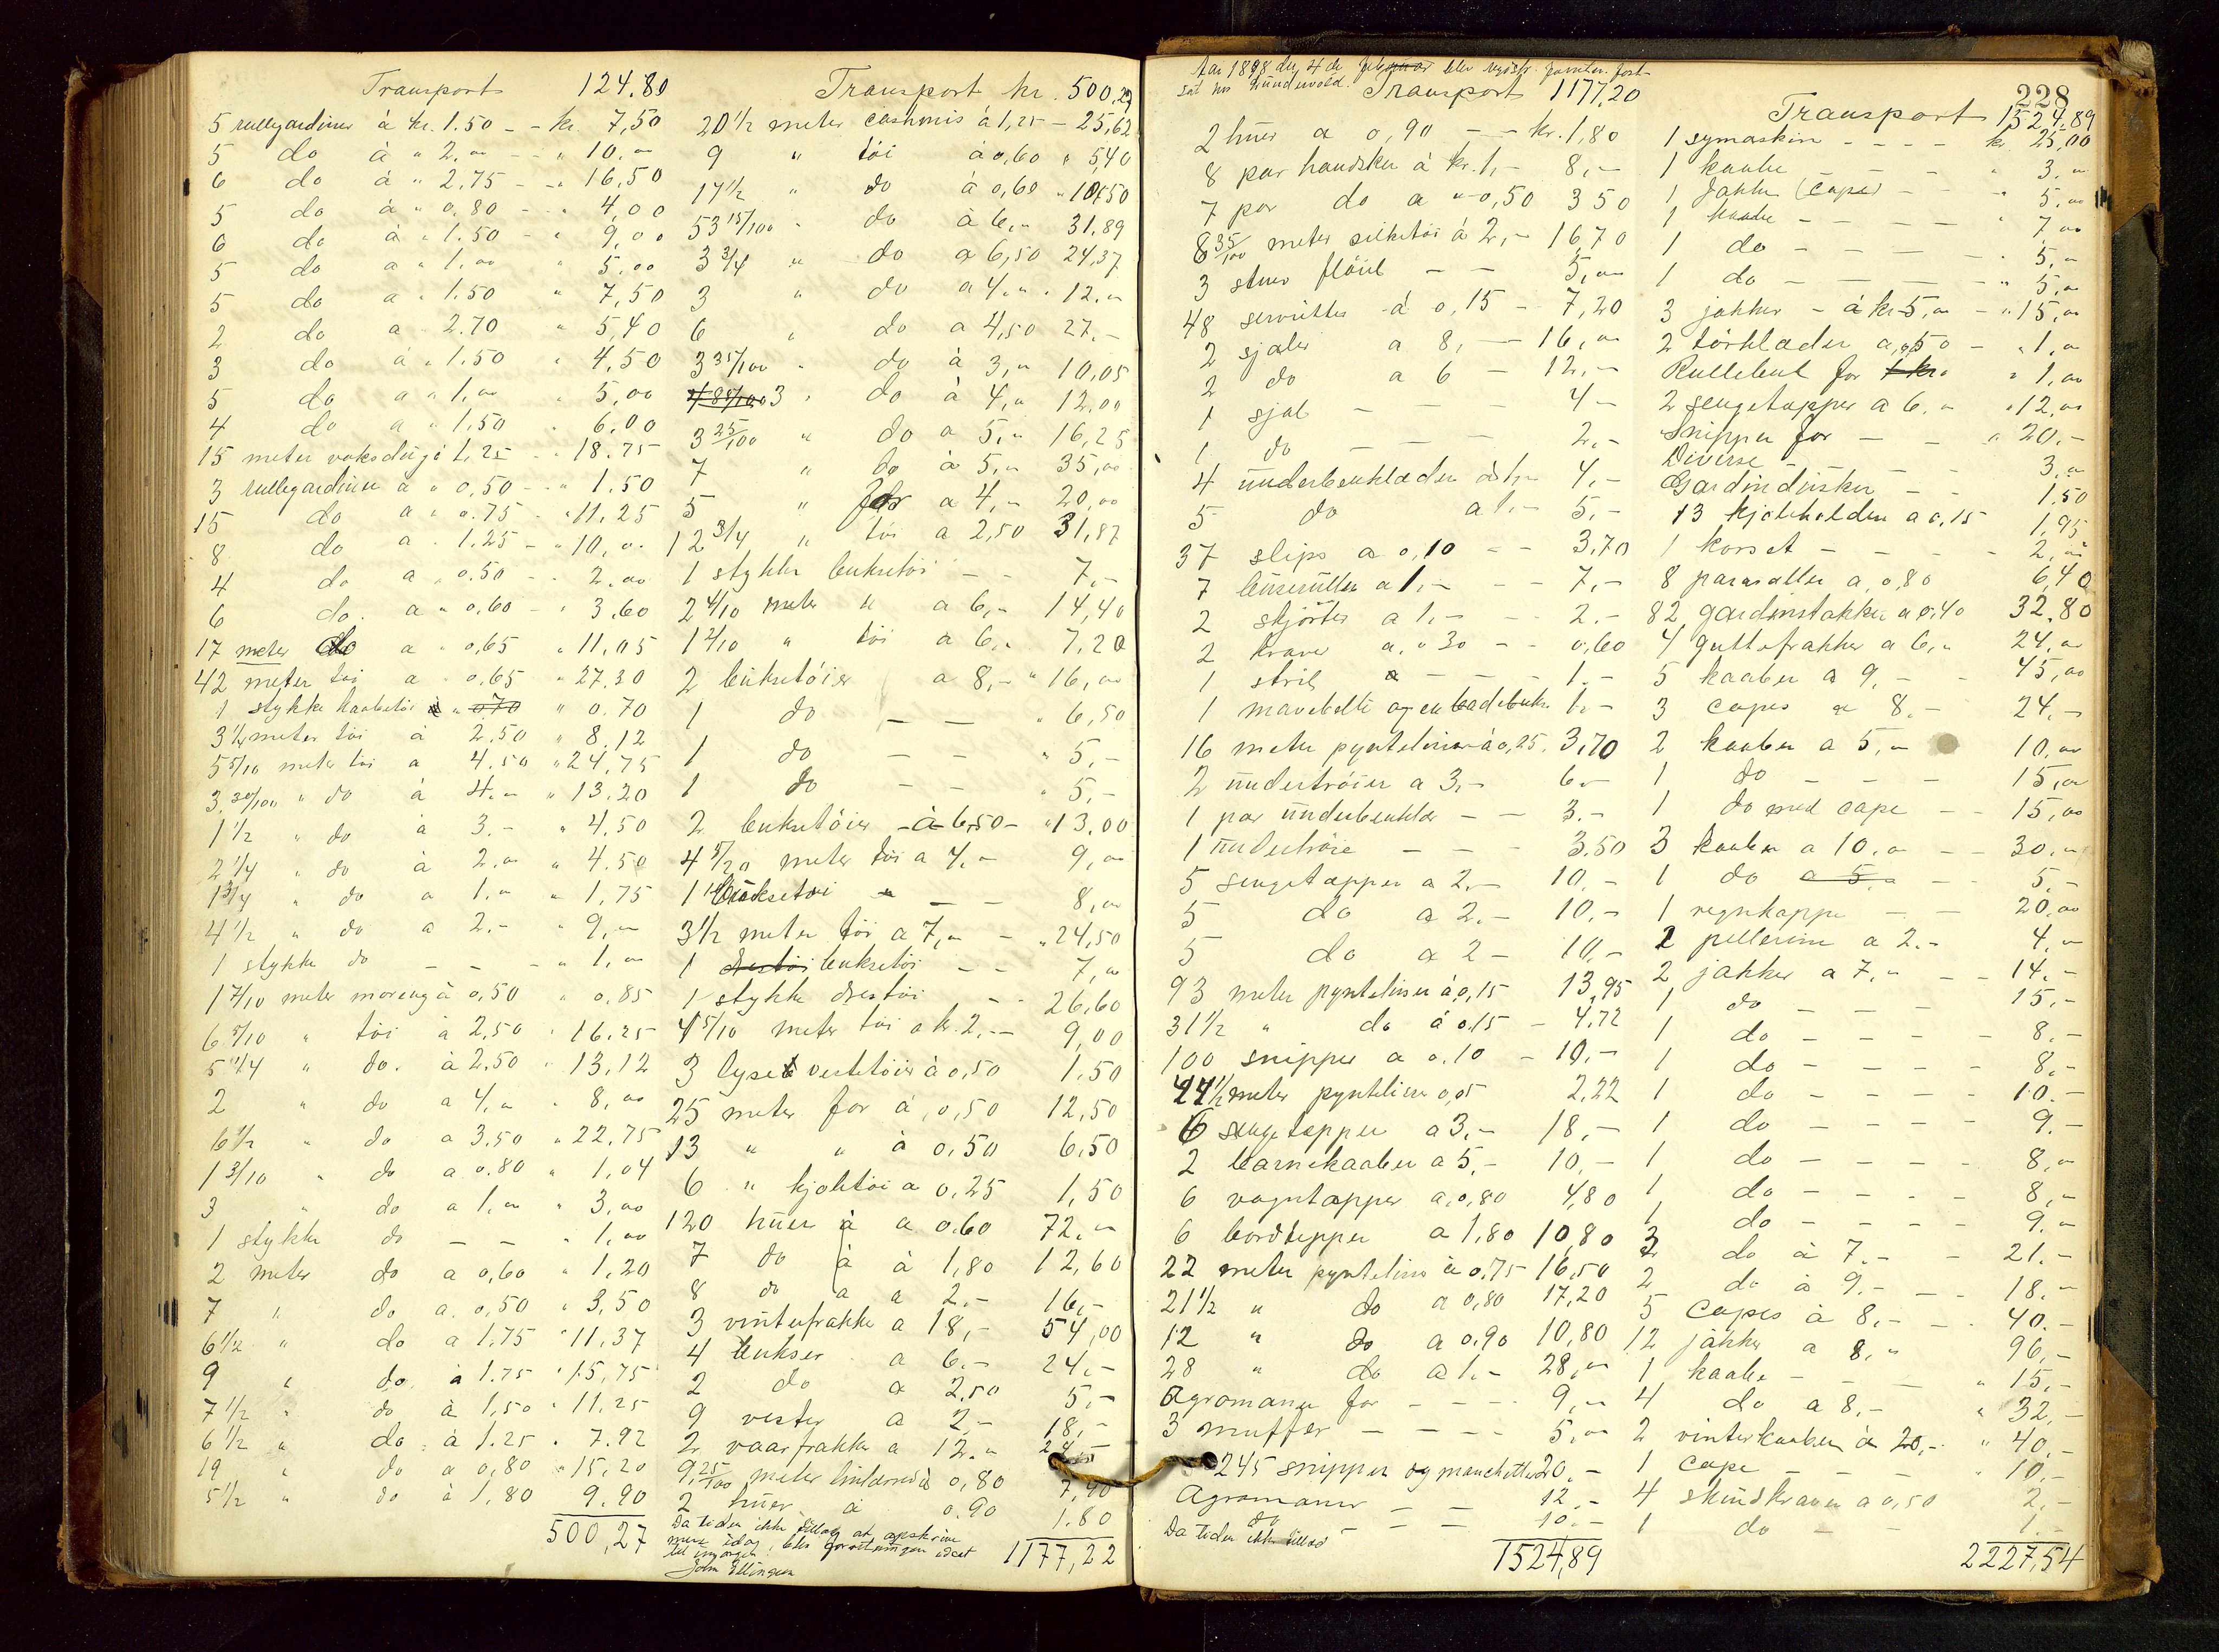 Transport 124.80
5 rullegardiner à kr. 1.50 - - kr. 7,50
5 do à " 2," - - " 10,"
6 do à " 2,75 - - " 16,50
5 do à " 0,80 - - " 4,00
6 do à " 1.50 - " 9,00
5 do a " 1,00 " 5,00
5 do a " 1.50 " 7,50
2 do a " 2.70 " 5,40
3 do à " 1.50 " 4,50
5 do a " 1,00 " 5,00
4 do a " 1,50 " 6.00
15 meter voksdug à 1,25 - " 18.75
3 rullegardiner a " 0,50 - - " 1.50
15 do a " 0.75 - " 11,25
8 do a " 1.25 - " 10,00
4 do a " 0,50 - - 2,00
6 do. a " 0,60 - " 3,60
17 meter do a " 0,65 " 11,05
42 meter töi a " 0,65 " 27.30
1 stykke kaabetöi à " 0.70 " 0.70
3 1/4 meter töi à 2,50 " 8.12
5 5/10 meter töi a 4.50 " 24,75
3,30/100 " do à 4." " 13.20
1 1/2 " do à 3.- " 4,50
2 1/4 " do à 2," " 4.50
1 3/4 " do a 1," " 1,75
4 1/2 " do a 2.- " 9,"
1 stykke do - - - " 1,"
1 7/10 meter moreng à 0,50 " 0.85
6 5/10 " töi à 2,50 " 16.25
5 1/4 " do. à 2.50 " 13,12
2 " do a 4," " 8,00
6 1/2 " do a 3.50 " 22,75
1 3/10 " do a 0.80 " 1,04
3 " do a 1," " 3,00
1 stykke do - - " 1,00
2 meter do a 0,60 " 1,20
7 " do a 0,50 " 3,50
6 1/2 " do a 1.75 " 11,37
9 " do. à 1.75 " 15,75
7 1/2 " do à 1,50 " 11.25
6 1/2 " do. à 1.25 " 7.92
19 " do a 0,80 " 15,20
5 1/2 " do à 1,80 9.90
500,27
Transport kr. 500,27
20 1/2 meter cashmis à 1,25 - 25,62
9 " töi à 0,60 " 5,40
17 1/2 " do à 0,60 " 10,50
53 15/100 " do à 6," 31.89
3 3/4 " do a 6,50 24,37
3 " do a 4," " 12."
6 " do a 4,50 27.-
3 35/100 " do à 3," 10,05
4 85/100 3 " do à 4," 12,00
3 25/100 " do a 5," 16,25
7 " do à 5," 35,00
5 " for a 4," 20,00
12 3/4 " töi a 2,50 31,87
1 stykke buksetöi - - 7.-
2 4/10 meter " a 6," 14,40
1 2/10 " töi a 6," 7,20
2 buksetöier a 8,- " 16,00
1 do - - " 6,50
1 do - - " 5,-
1 do - - " 5,-
2 buksetöier - à 6,50 - " 13,00
4 5/10 meter töi a 4," 9,"
1 buksetöi - - 8,00
3 1/2 meter töi a 7," - " 24,50
1 drestöi buksetöi - - 7,"
1 stykke drestöi - - 26,60
4 5/10 meter töi a kr. 2,-- 9,00
3 lyse vestetöier à 0,50 1.50
25 meter for à 0,50 12,50
13 " " à 0,50 6,50
6 " kjoletöi a 0,25 1,50
120 huer à a 0.60 72,"
7 do à à 1,80 12,60
8 do a a 2.- 16,-
3 vinterfrakke a 18,- 54,00
4 bukser a 6.- 24,-
2 do a 2,50 5,-
9 vester a 2- 18,-
2 vaarfrakke a 12." 24,-
9,25/100 meter linlærred à 0,80 7,40
2 huer à 0.90 1.80
Da tiden ikke tillod at opskrive
mere idag, blev forretningen udsat
til imorgen.
John Ellingsen
1177,22
Aar 1898 den 4de februar blev registr. forretn. fort-
sat hos Lundervold.
228
Transport 1177,20
2 huer a 0,90 - - kr. 1,80
8 par handsker à kr. 1,- 8,-
7 par do a " 0,50 3 50
8 35/100 meter silketöi à 2,- 16,70
3 stuer flöiel - - 5,00
48 servietter à 0,15 - 7,20
2 sjaler a 8, - 16,00
2 do a 6 - 12,-
1 sjal - - - 4-
1 do - - - 2,-
4 underbenklæder à 1,- 4,-
5 do a 1,- 5,-
37 slips a 0,10 - - 3,70
7 a 1,- - - 7,-
2 skjörter a 1,- - - 2.-
2 kraver a 0,30 - - 0,60
1 a - - - 1.-
1 mavebelte og en badebukse 1.-
16 meter pyntelinser à 0,25. 3,70
2 undertröier a 3,- 6,-
1 par underbenklær - - 3.-
1 undertröie - - - 3.50
5 sengetæpper a 2.- 10.-
5 do a 2.- 10,-
5 do a 2 - 10,-
93 meter pyntelinser à 0,15 13,95
31 1/2 " do à 0.15 - 4,72
100 snipper a 0.10 - 10,-
44 1/2 meter pyntelinser 0,05 2,22
6 sengetæpper a 3.- 18,-
2 barnekaaber a 5.- 10,-
6 vogntæpper a 0,80 4,80
6 bordtepper a 1,80 10,80
22 meter pyntelinser à 0.75 16,50
21 1/2 " do a 0,80 17,20
12 " do a 0.90 10,80
28 " do a 1.- 28,00
Agramaner for - - - - 9,-
3 muffer - - - - 5,00
245 snipper og manchetter 20.-
Agramaner - - 12.-
do - - 10.-
Da tiden ikke tillod
1524,89
Transport 1524,89
1 symaskin - - - - kr. 25,00
1 kaabe - - - " 3,"
1 Jakke (cape) - - - " 5,00
1 kaabe - - - - " 7,00
1 do - - - - " 5,"
1 do - - - - " 5,"
3 jakker - à kr 5," - " 15,00
2 törklæder a 0,50 - " 1,"
Rullebuk for 1 kr. " 1,00
2 sengetæpper a 6," " 12,00
Snipper for - - " 20.-
Diverse - - - 3,"
Gardindusker - - 1.50
13 kjoleholdere a 0,15 1,95
1 korset - - - - 2,00
8 parasoller a 0,80 6,40
82 gardinstakker a 0,40 32.80
4 guttefrakker a 6," 24,00
5 kaaber a 9,- - 45,00
3 capes a 8.- 24.-
2 kaaber a 5," 10,00
1 do - - - 15,00
1 do med cape - - 15,00
3 kaaber a 10," - - 30,"
1 do a 5," - - 5.-
1 regnkappe - - 20,00
2 pellerine a 2.- 4,"
2 jakker a 7," - - 14.-
1 do - - - 15.-
1 do - - - - 8.-
1 do - - - - 8.-
1 do - - - - 10.-
1 do - - - - 9.-
1 do - - - - 8,"
1 do - - - - 8,"
1 do - - - - 9,"
3 do à 7.- - 21.-
2 do à 9.- - - 18.-
5 Capes à 8,- - - 40.-
12 jakker a 8," 96,-
1 kaabe - - - " 15,-
4 do a 8,- " 32,-
2 vinterkaaber à 20,- " 40,-
1 Cape - - - " 10.-
4 skindkraver a 0,50 2,-
1 do - - 1.-
2227,54